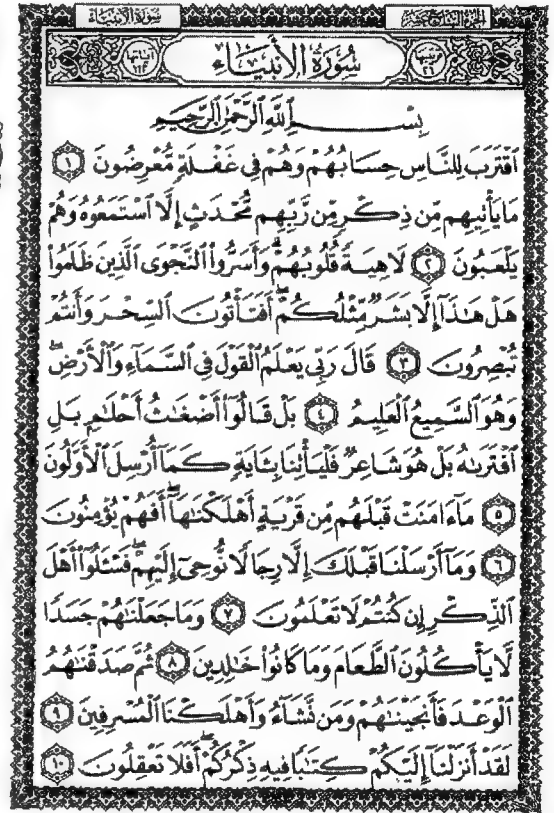 سُورَةُ الأَنبِيَاء الجُزءُ السَّابِعَ عَشَرَ
آيَاتُهَا ١١٢ سُورَةُ الأَنبِيَاء تَرتِيبُهَا ٢١
بِسْمِ ٱللَّهِ ٱلرَّحْمَٰنِ ٱلرَّحِيمِ
ٱقْتَرَبَ لِلنَّاسِ حِسَابُهُمْ وَهُمْ فِى غَفْلَةٍ مُّعْرِضُونَ ١
مَا يَأْتِيهِم مِّن ذِكْرٍ مِّن رَّبِّهِم مُّحْدَثٍ إِلَّا ٱسْتَمَعُوهُ وَهُمْ
يَلْعَبُونَ ٢ لَاهِيَةً قُلُوبُهُمْ ۗ وَأَسَرُّوا۟ ٱلنَّجْوَى ٱلَّذِينَ ظَلَمُوا۟
هَلْ هَٰذَآ إِلَّا بَشَرٌ مِّثْلُكُمْ ۖ أَفَتَأْتُونَ ٱلسِّحْرَ وَأَنتُمْ
تُبْصِرُونَ ٣ قَالَ رَبِّى يَعْلَمُ ٱلْقَوْلَ فِى ٱلسَّمَآءِ وَٱلْأَرْضِ ۖ
وَهُوَ ٱلسَّمِيعُ ٱلْعَلِيمُ ٤ بَلْ قَالُوٓا۟ أَضْغَٰثُ أَحْلَٰمٍۭ بَلِ
ٱفْتَرَىٰهُ بَلْ هُوَ شَاعِرٌ فَلْيَأْتِنَا بِـَٔايَةٍ كَمَآ أُرْسِلَ ٱلْأَوَّلُونَ
٥ مَآ ءَامَنَتْ قَبْلَهُم مِّن قَرْيَةٍ أَهْلَكْنَٰهَآ ۖ أَفَهُمْ يُؤْمِنُونَ
٦ وَمَآ أَرْسَلْنَا قَبْلَكَ إِلَّا رِجَالًا نُّوحِىٓ إِلَيْهِمْ ۖ فَسْـَٔلُوٓا۟ أَهْلَ
ٱلذِّكْرِ إِن كُنتُمْ لَا تَعْلَمُونَ ٧ وَمَا جَعَلْنَٰهُمْ جَسَدًا
لَّا يَأْكُلُونَ ٱلطَّعَامَ وَمَا كَانُوا۟ خَٰلِدِينَ ٨ ثُمَّ صَدَقْنَٰهُمُ
ٱلْوَعْدَ فَأَنجَيْنَٰهُمْ وَمَن نَّشَآءُ وَأَهْلَكْنَا ٱلْمُسْرِفِينَ ٩
لَقَدْ أَنزَلْنَآ إِلَيْكُمْ كِتَٰبًا فِيهِ ذِكْرُكُمْ ۖ أَفَلَا تَعْقِلُونَ ١٠